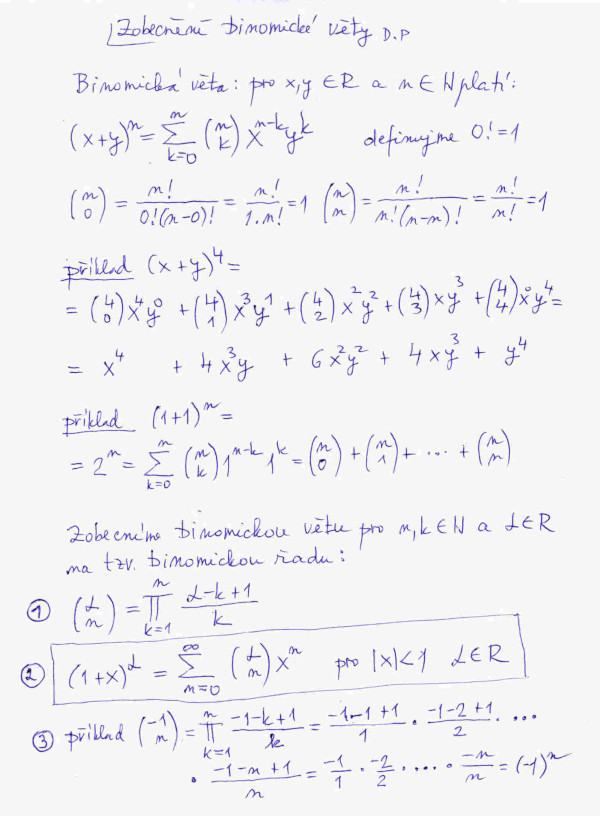 Zobecnění binomické věty D.P
Binomická věta: pro x,y ∈ R a n ∈ N platí:
(x+y)^n = ∑_{k=0}^{n} (n k) x^{n-k} y^k definujme 0! = 1
(n 0) = n!/(0!(n-0)!) = n!/(1.n!) = 1 (n n) = n!/(n!(n-n)!) = n!/n! = 1
příklad (x+y)^4 =
= (4 0) x^4 y^0 + (4 1) x^3 y^1 + (4 2) x^2 y^2 + (4 3) x y^3 + (4 4) x^0 y^4 =
= x^4 + 4x^3y + 6x^2y^2 + 4xy^3 + y^4
příklad (1+1)^n =
= 2^n = ∑_{k=0}^{n} (n k) 1^{n-k} 1^k = (n 0) + (n 1) + ... + (n n)
Zobecníme binomickou větu pro n,k ∈ N a α ∈ R
na tzv. binomickou řadu:
① (α n) = ∏_{k=1}^{n} (α-k+1)/k
② (1+x)^α = ∑_{n=0}^{∞} (α n) x^n pro |x|<1 α ∈ R
③ příklad (-1 n) = ∏_{k=1}^{n} (-1-k+1)/k = (-1-1+1)/1 · (-1-2+1)/2 · ...
· (-1-n+1)/n = -1/1 · -2/2 · .... · -n/n = (-1)^n